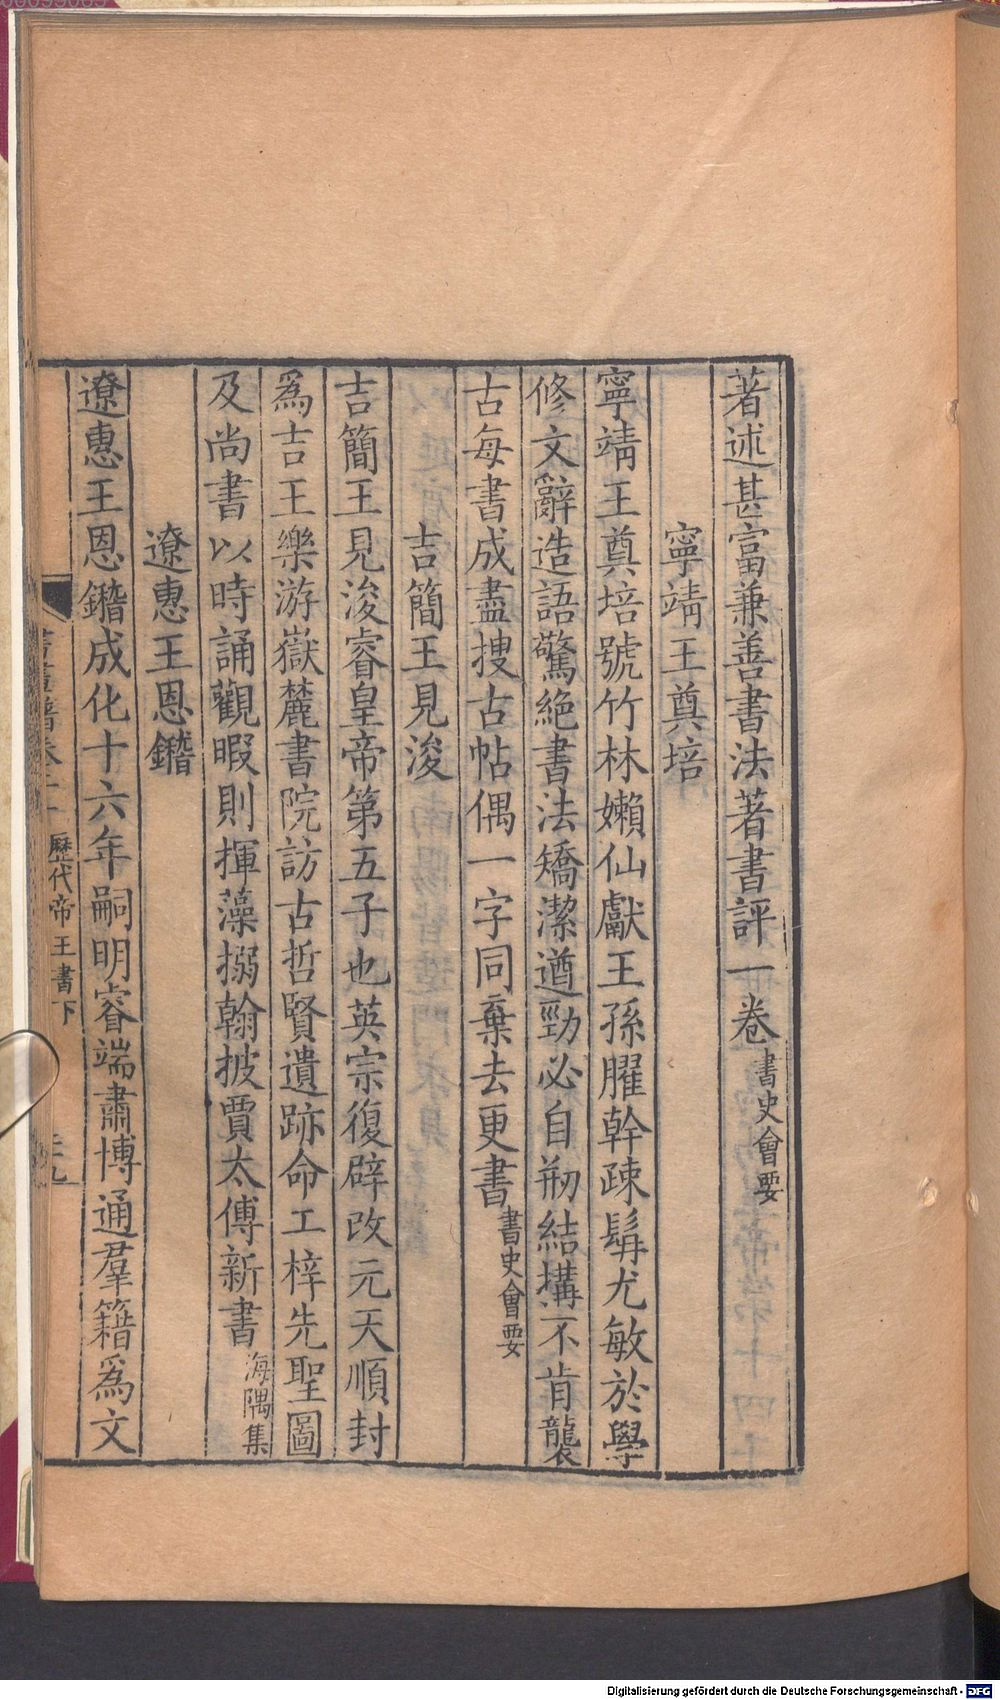 著述甚富兼善書法著書評一卷書史會要
寧靖王奠培
寧靖王奠培號竹林嬾仙獻王孫臞幹疎髯尤敏於學
修文辭造語驚絕書法矯潔遒勁必自剏結搆不肯襲
古每書成盡搜古帖偶一字同棄去更書書史會要
吉簡王見浚
吉簡王見浚睿皇帝第五子也英宗復辟改元天順封
爲吉王樂游嶽麓書院訪古哲賢遺跡命工梓先聖圖
及尚書以時誦觀暇則揮藻搦翰披賈太傅新書海隅集
遼惠王恩鐕
遼惠王恩鐕成化十六年嗣明睿端肅博通羣籍爲文
歷代帝王書下
Digitalisierung gefördert durch die Deutsche Forschungsgemeinschaft - DFG